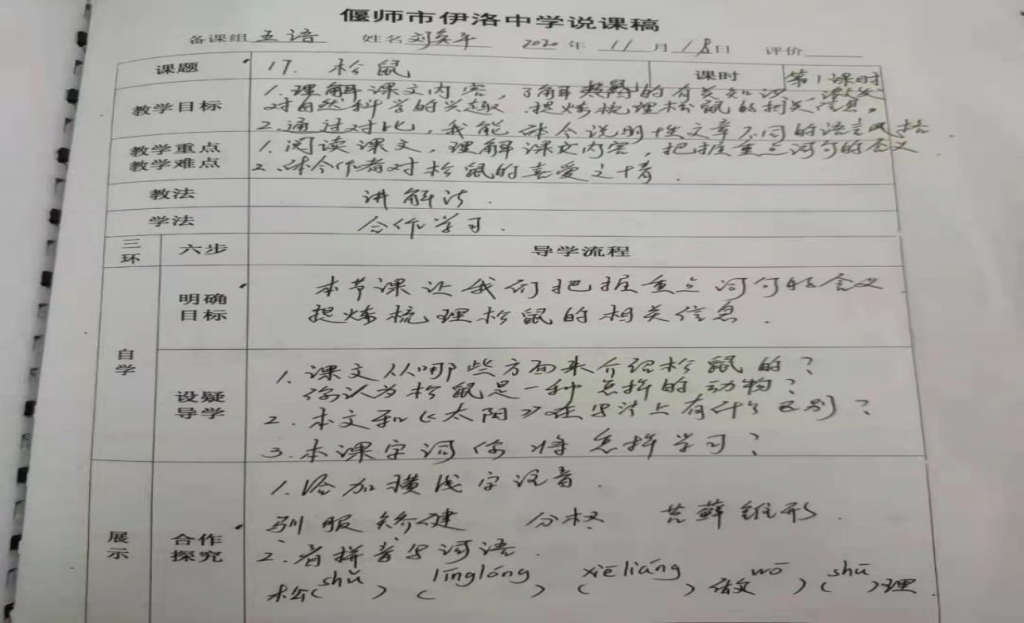 偃师市伊洛中学说课稿
备课组 五语 姓名 刘英平 2020年 11月 18日 评价
课题 17. 松鼠 课时 第1课时
教学目标 1.理解课文内容,了解松鼠的有关知识,
对自然科学的兴趣 提炼梳理松鼠的相关信息。
2.通过对比,我能体会说明性文章不同的语言风格
教学重点 1.阅读课文,理解课文内容,把握重点词句的含义
教学难点 2.体会作者对松鼠的喜爱之情.
教法 讲解法.
学法 合作学习.
三环 六步 导学流程
自学 明确目标 本节课让我们把握重点词句的含义
提炼梳理松鼠的相关信息.
设疑导学 1.课文从哪些方面来介绍松鼠的?
你认为松鼠是一种怎样的动物?
2.本文和《太阳》在写法上有什么区别?
3.本课字词你将怎样学习?
展示 合作探究 1.给加横线字注音.
驯服 矫健 分杈 苔藓 锥形.
2.看拼音写词语.
松(shǔ) (línglóng) (xiēliáng) 做(wō) (shū)理